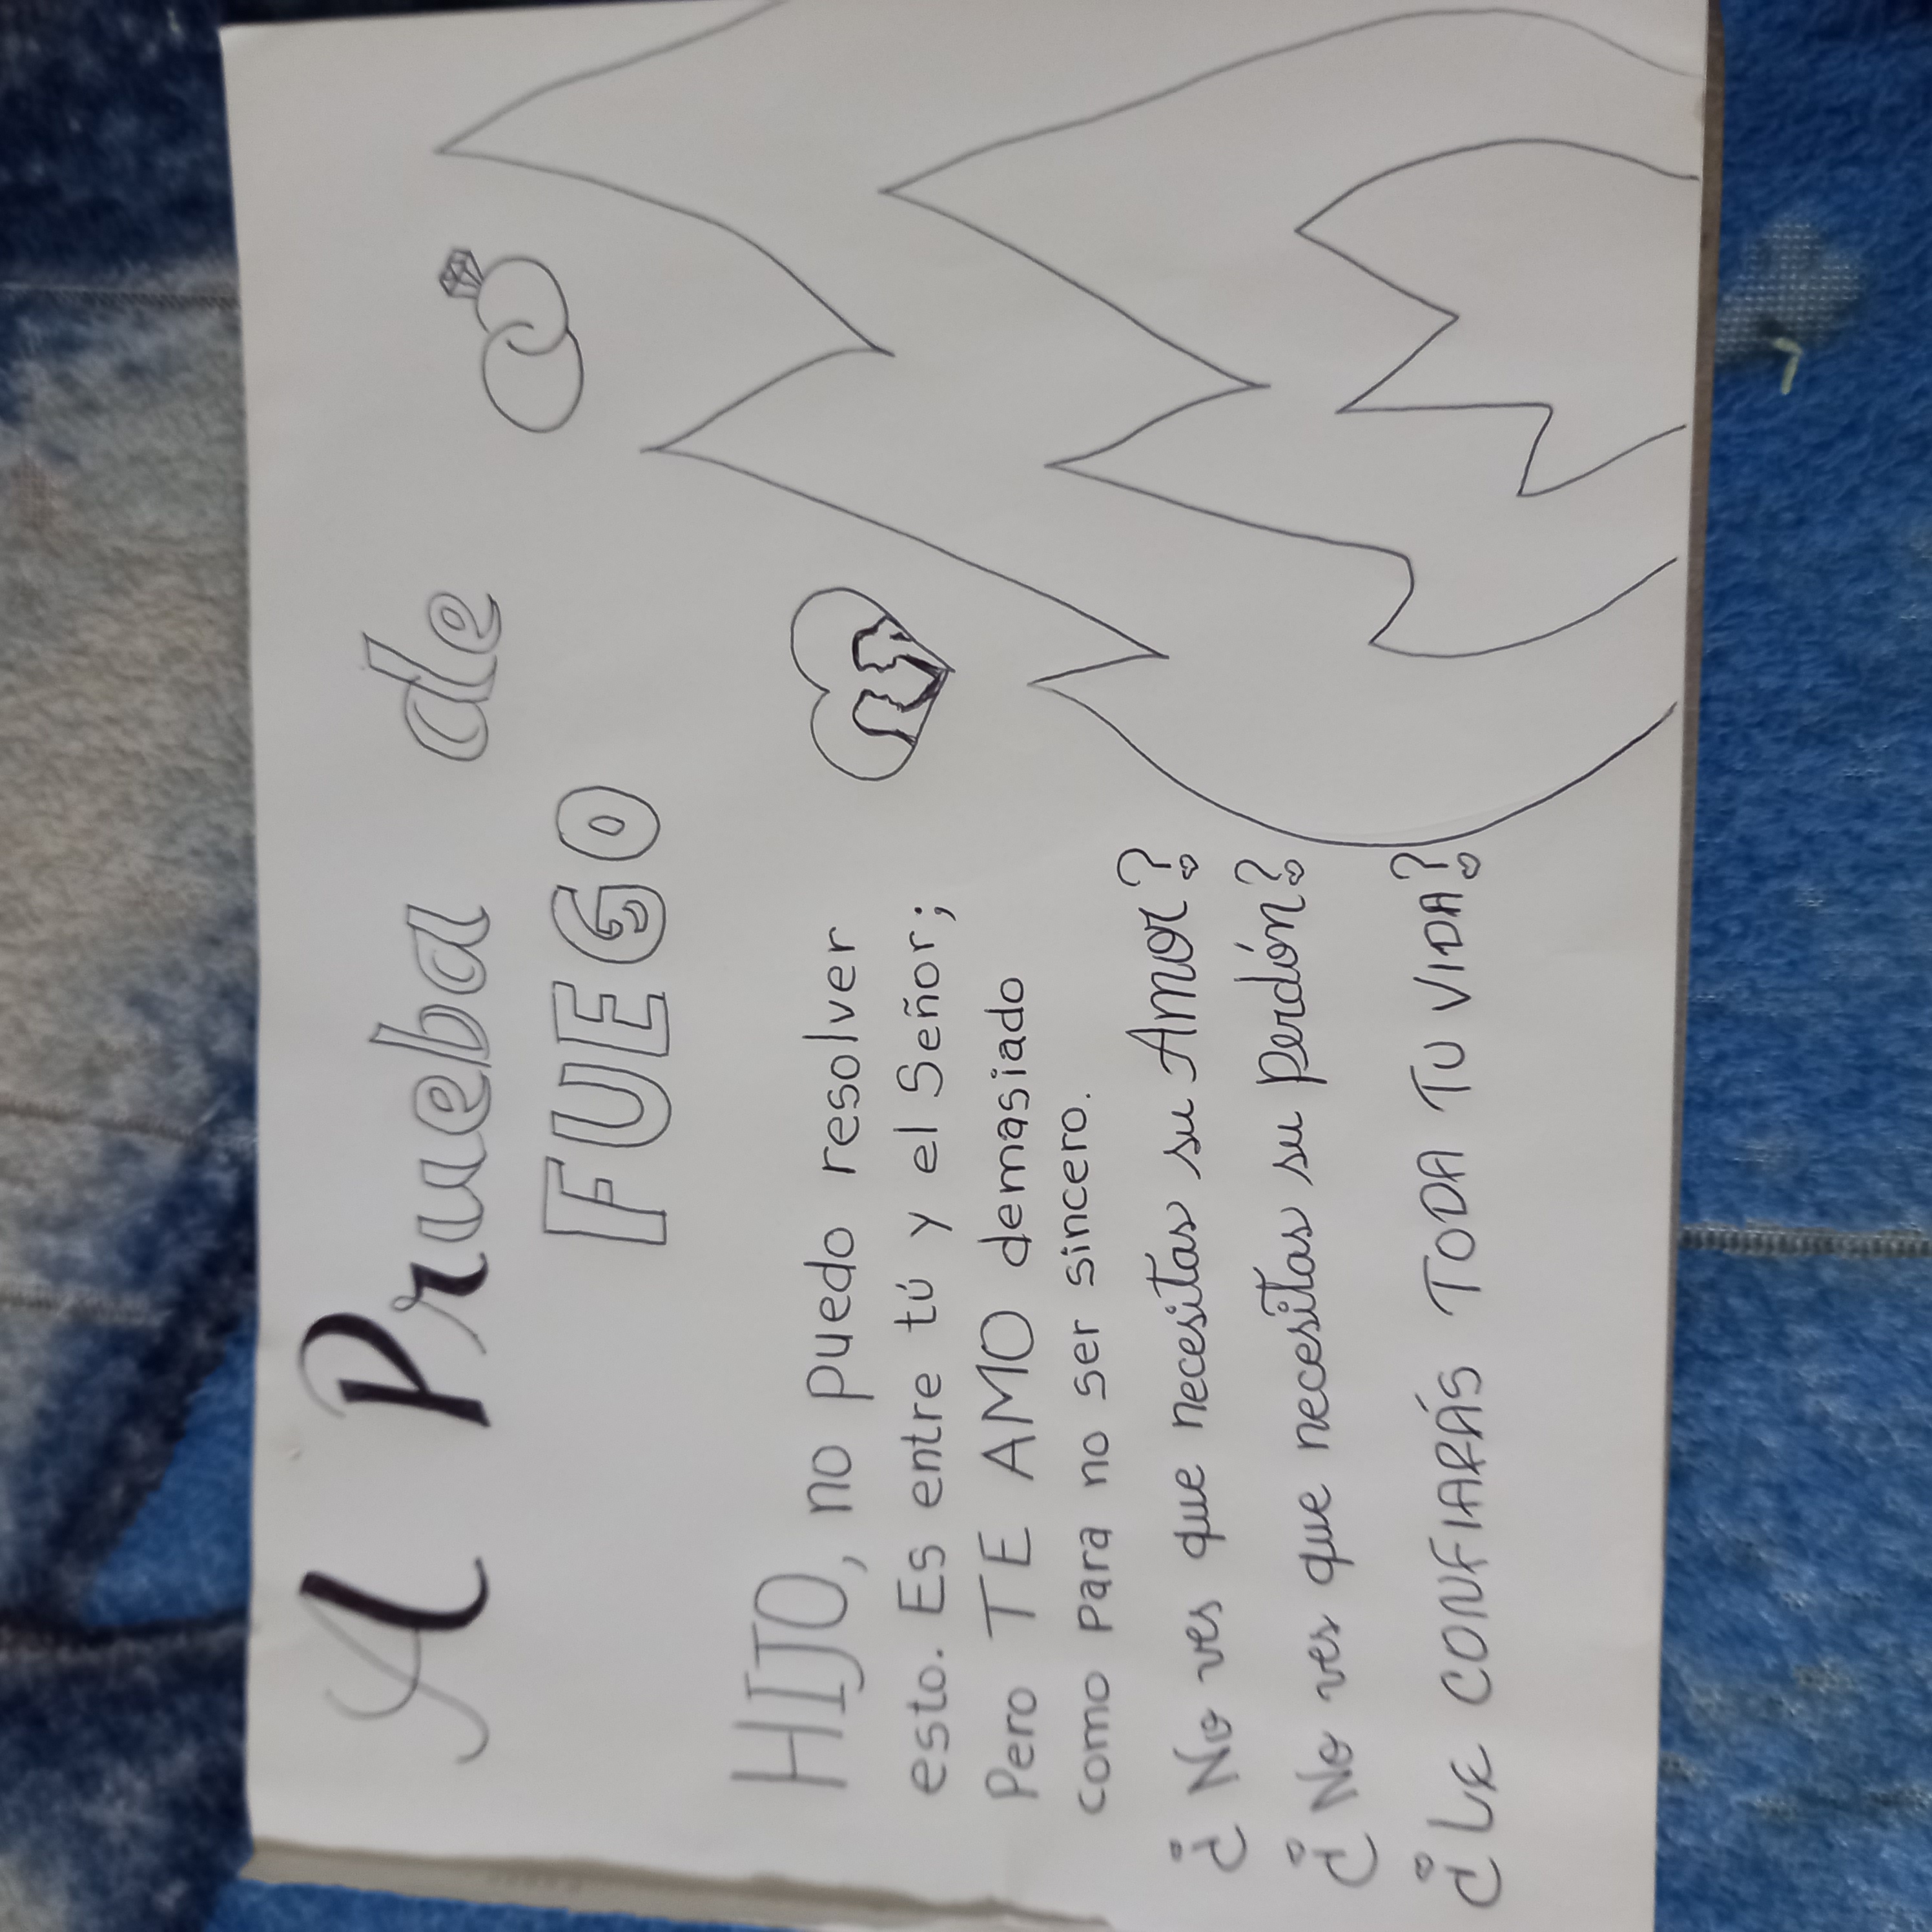 A Prueba de
FUEGO
HIJO, no puedo resolver
esto. Es entre tú y el Señor;
Pero TE AMO demasiado
como para no ser sincero.
¿No ves que necesitas su Amor?
¿No ves que necesitas su perdón?
¿LE CONFIARÁS TODA TU VIDA?